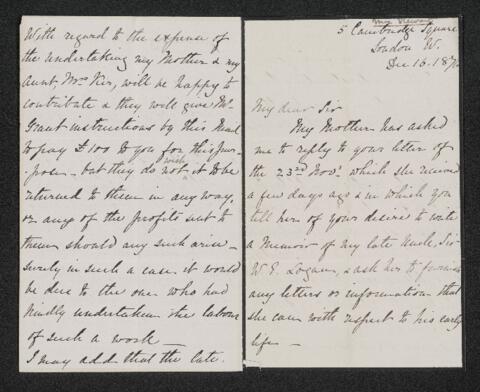 5 Cambridge Square
London W.
Dec 15. 187
My dear Sir
My Mother has asked
me to reply to your letter of
the 23rd Novr. which she received
a few days ago & in which you
tell her of your desire to write
a Memoir of my late Uncle, Sir
W. E. Logan, & ask her to furnish
any letters or information that
she can with respect to his early
life —
With regard to the expense of
the undertaking my Mother & my
Aunt, Mrs Ker, will be happy to
contribute & they will give Mr
Grant instructions by this Mail
to pay £100 to you for this pur-
-pose — but they do not wish it to be
returned to them in any way,
or any of the profits sent to
them should any such arise —
surely in such a case it would
be due to the one who had
kindly undertaken the labour
of such a work —
I may add that the late